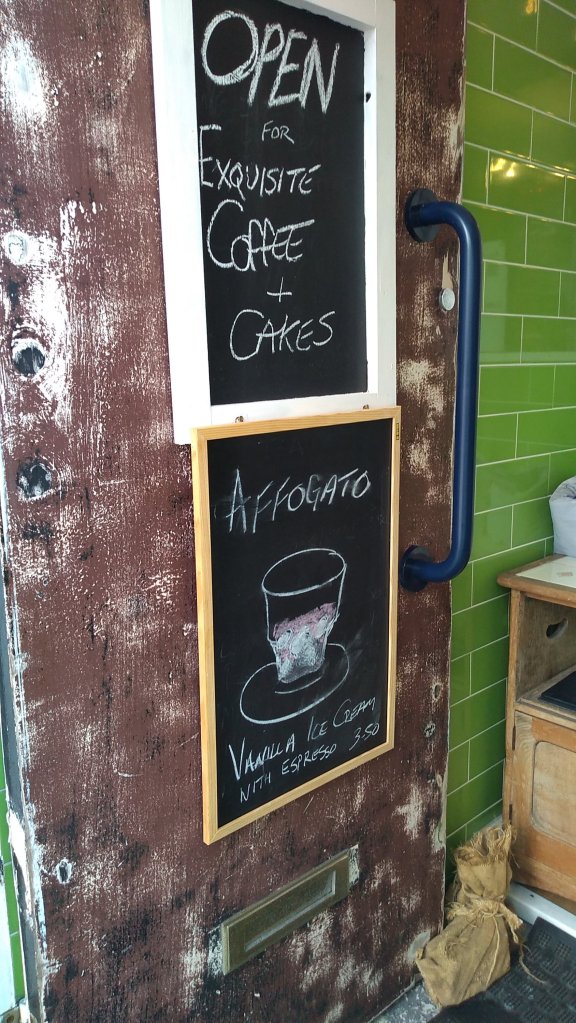 OPEN
FOR
EXQUISITE
COFFEE
+
CAKES
AFFOGATO
VANILLA ICE CREAM
WITH ESPRESSO 3.50